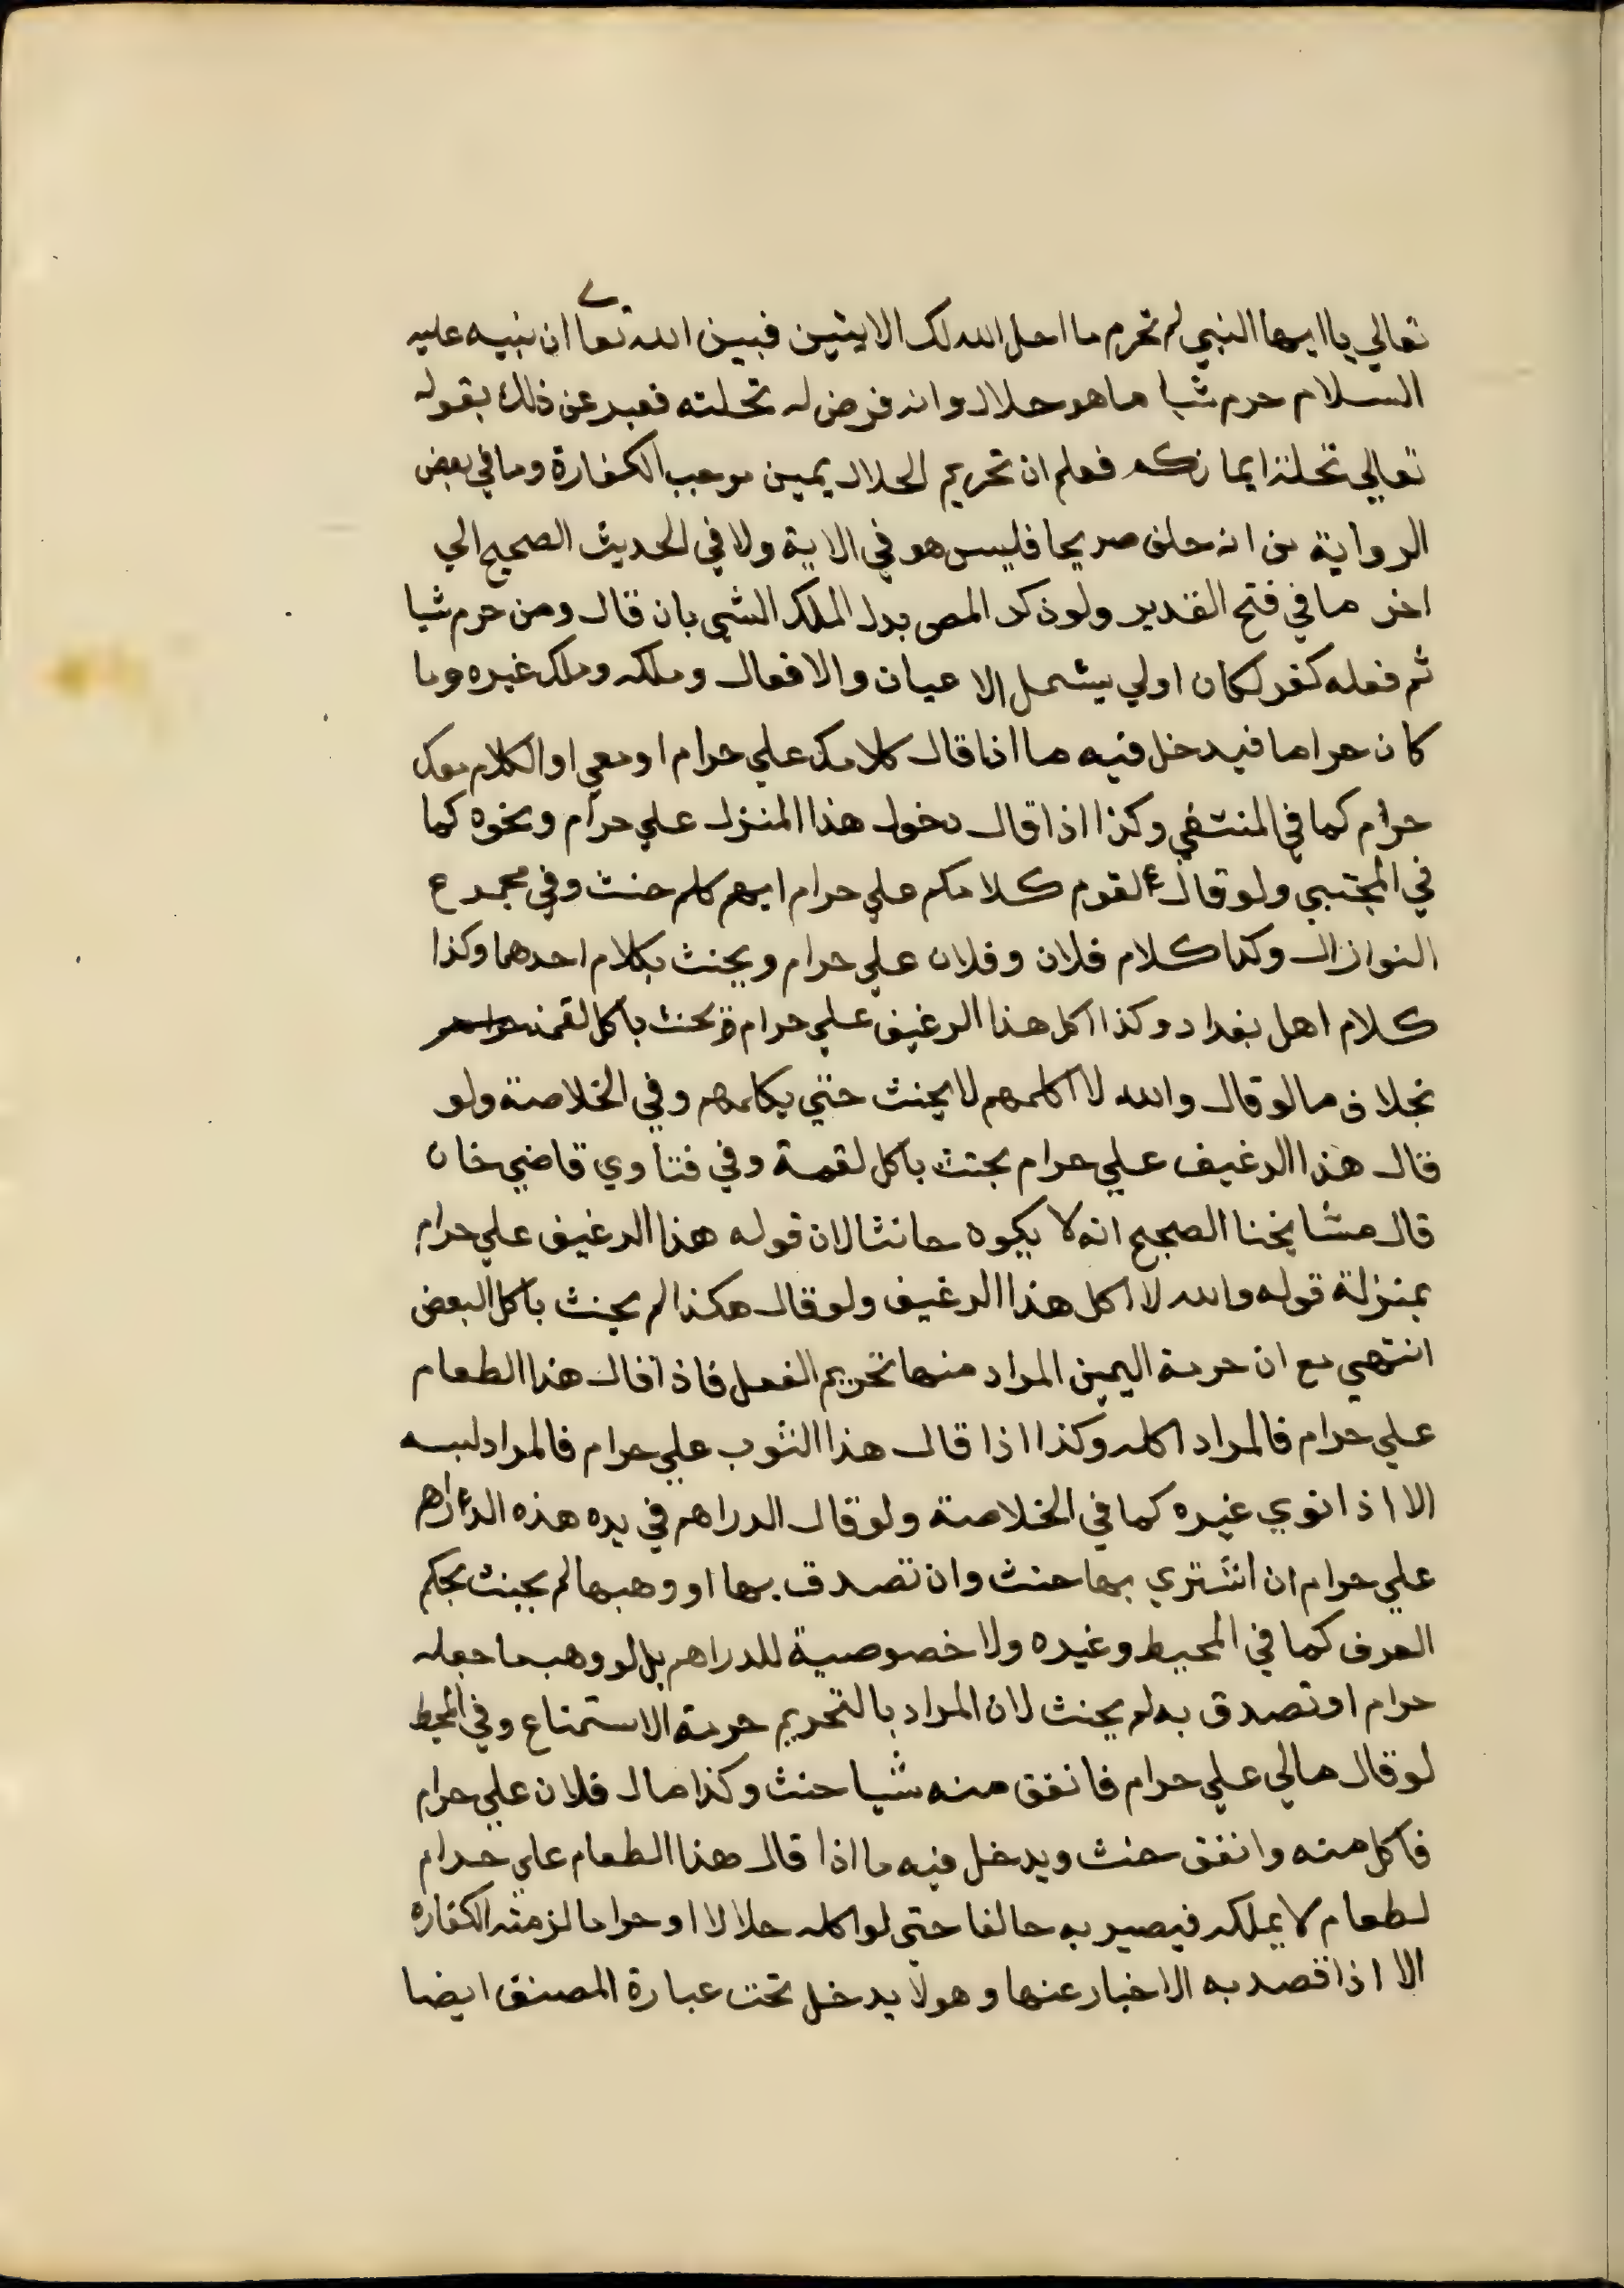 تعالي يا ايها النبي لم تحرم ما احل الله لك الايتين فبين الله تعا ان نبيه عليه
السلام حرم شيا ما هو حلال وانه فرض له تحلته فعبر عن ذلك بقوله
تعالي تحلة ايمانكم فعلم ان تحريم الحلال يمين موجب الكفارة وما في بعض
الرواية من انه حلف صريحا فليس هو في الاية ولا في الحديث الصحيح الي
اخر ما في فتح القدير ولو ذكر المص بدل الملك الشي بان قال ومن حرم شيا
ثم فعله كفر لكان اولي يشمل الاعيان والافعال وملكه وملك غيره وما
كان حراما فيدخل فيه ما اذا قال كلامك علي حرام او معي او الكلام معك
حرام كما في المنتقي وكذا اذا قال دخول هذا المنزل علي حرام ونحوه كما
في المجتبي ولو قال لقوم كلامكم علي حرام ايهم كلم حنث وفي مجموع
النوازل وكذا كلام فلان وفلان علي حرام ويحنث بكلام احدهما وكذا
كلام اهل بغداد وكذا اكل هذا الرغيف علي حرام يحنث باكل لقمة
بخلاف ما لو قال والله لا اكلمهم لا يحنث حتي يكلمهم وفي الخلاصة ولو
قال هذا الرغيف علي حرام يحنث باكل لقمة وفي فتاوي قاضي خان
قال مشايخنا الصحيح انه لا يكون حانثا لان قوله هذا الرغيف علي حرام
بمنزلة قوله والله لا اكل هذا الرغيف ولو قال هكذا لم يحنث باكل البعض
انتهي مع ان حرمة اليمين المراد منها تحريم الفعل فاذا قال هذا الطعام
علي حرام فالمراد اكله وكذا اذا قال هذا الثوب علي حرام فالمراد لبسه
الا اذا نوي غيره كما في الخلاصة ولو قال الدراهم في يده هذه الدراهم
علي حرام ان اشتري بها حنث وان تصدق بها او وهبها لم يحنث بحكم
العرف كما في المحيط وغيره ولا خصوصية للدراهم بل لو وهب ما جعله
حرام او تصدق به لم يحنث لان المراد بالتحريم حرمة الاستمتاع وفي المحيط
لو قال مالي علي حرام فانفق منه شيا حنث وكذا مال فلان علي حرام
فاكل منه وانفق حنث ويدخل فيه ما اذا قال هذا الطعام علي حرام
لطعام لا يملكه فيصير به حالفا حتي لو اكله حلالا او حراما لزمته الكفارة
الا اذا قصد به الاخبار عنها وهو لا يدخل تحت عبارة المصنف ايضا